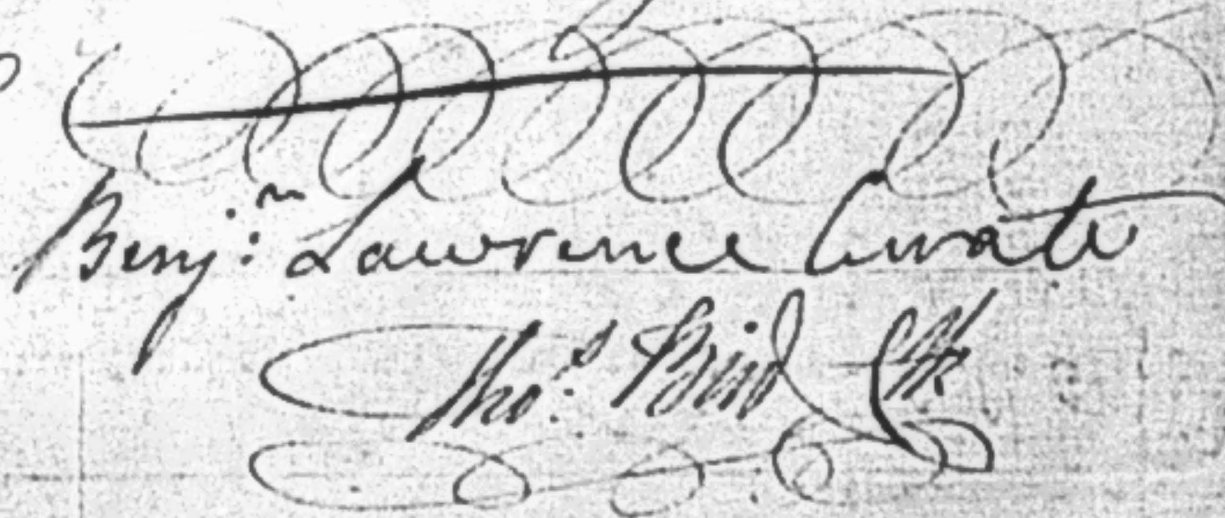 Benj.n Lawrence Curate
Tho.s Bird Clk